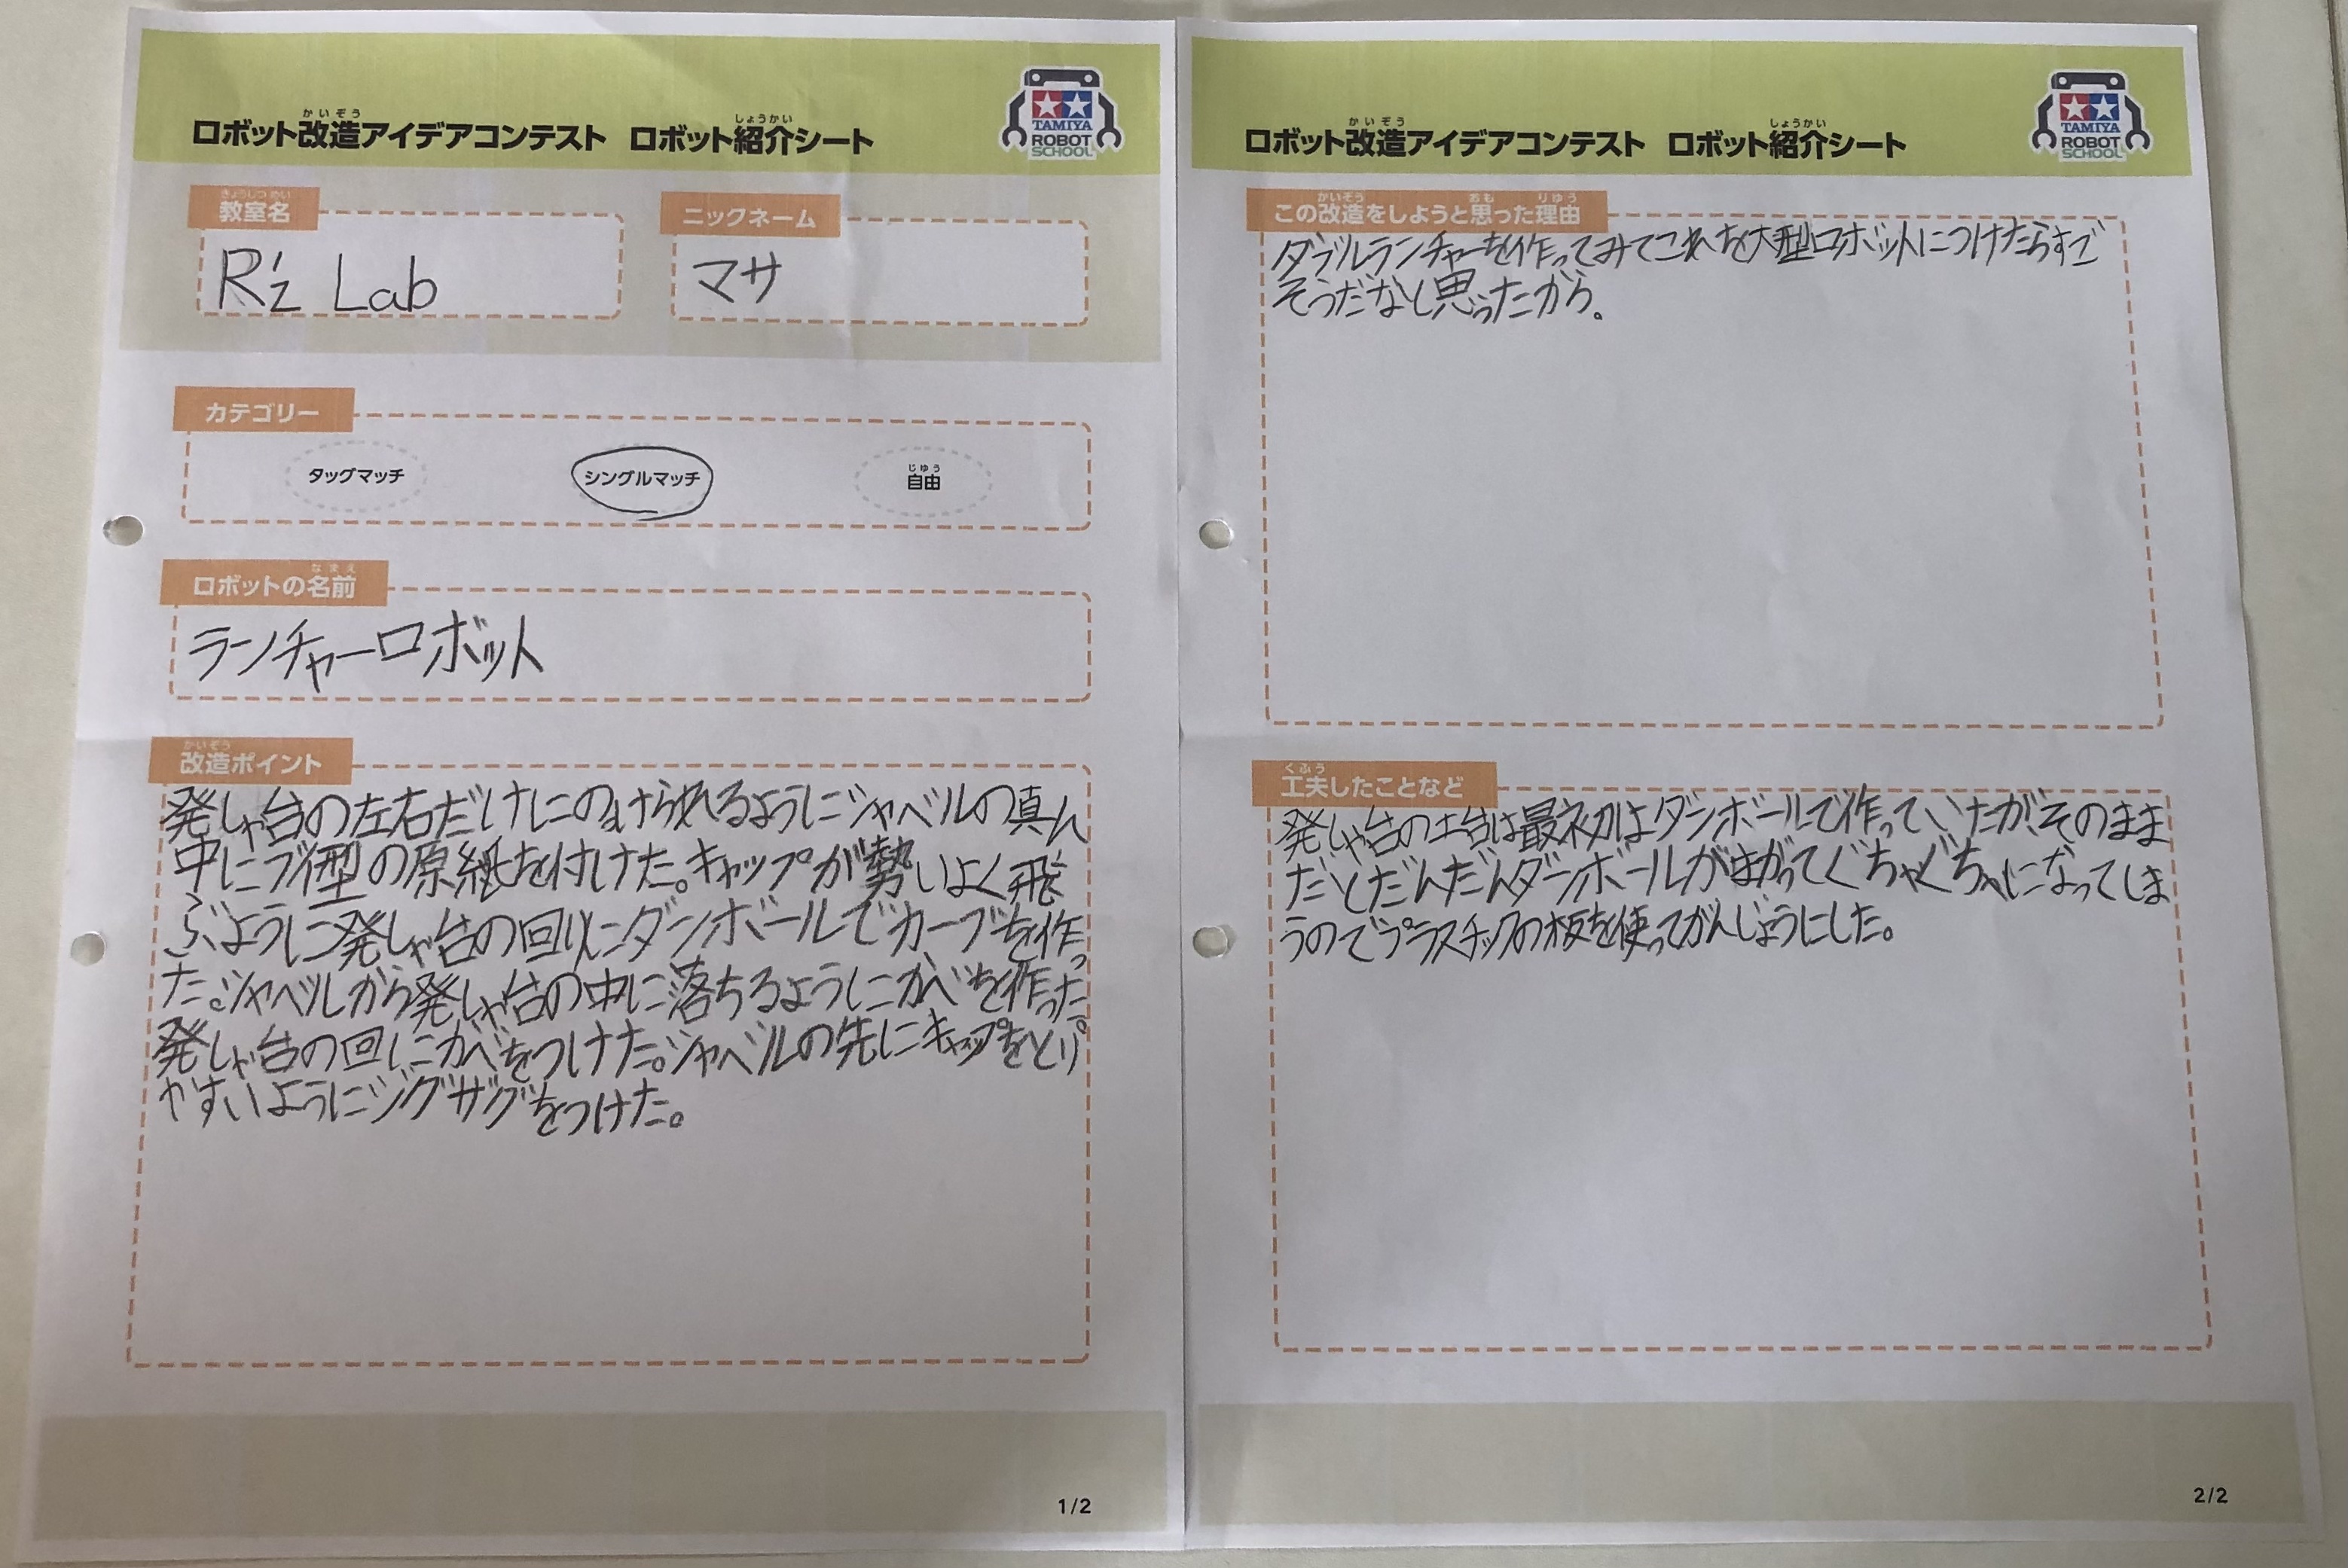 ロボット改造アイデアコンテスト ロボット紹介シート
かいぞう
しょうかい
TAMIYA
ROBOT
SCHOOL
教室名
きょうしつ めい
R'z Lab
ニックネーム
マサ
カテゴリー
タッグマッチ
シングルマッチ
自由
じゆう
ロボットの名前
なまえ
ランチャーロボット
改造ポイント
かいぞう
発しゃ台の左右だけにのせられるようにシャベルの真ん
中にブイ型の原紙を付けた。キャップが勢いよく飛
ぶように発しゃ台の回りにダンボールでカーブを作っ
た。シャベルから発しゃ台の中に落ちるようにかべを作った。
発しゃ台の回にかべをつけた。シャベルの先にキャップをとり
やすいようにジグザグをつけた。
1/2
ロボット改造アイデアコンテスト ロボット紹介シート
かいぞう
しょうかい
TAMIYA
ROBOT
SCHOOL
この改造をしようと思った理由
かいぞう
おも
りゆう
ダブルランチャーを作ってみてこれを大型ロボットにつけたらすご
そうだなと思ったから。
工夫したことなど
くふう
発しゃ台の土台は最初はダンボールで作っていたが、そのまま
だとだんだんダンボールがまがってぐちゃぐちゃになってしま
うのでプラスチックの板を使ってがんじょうにした。
2/2